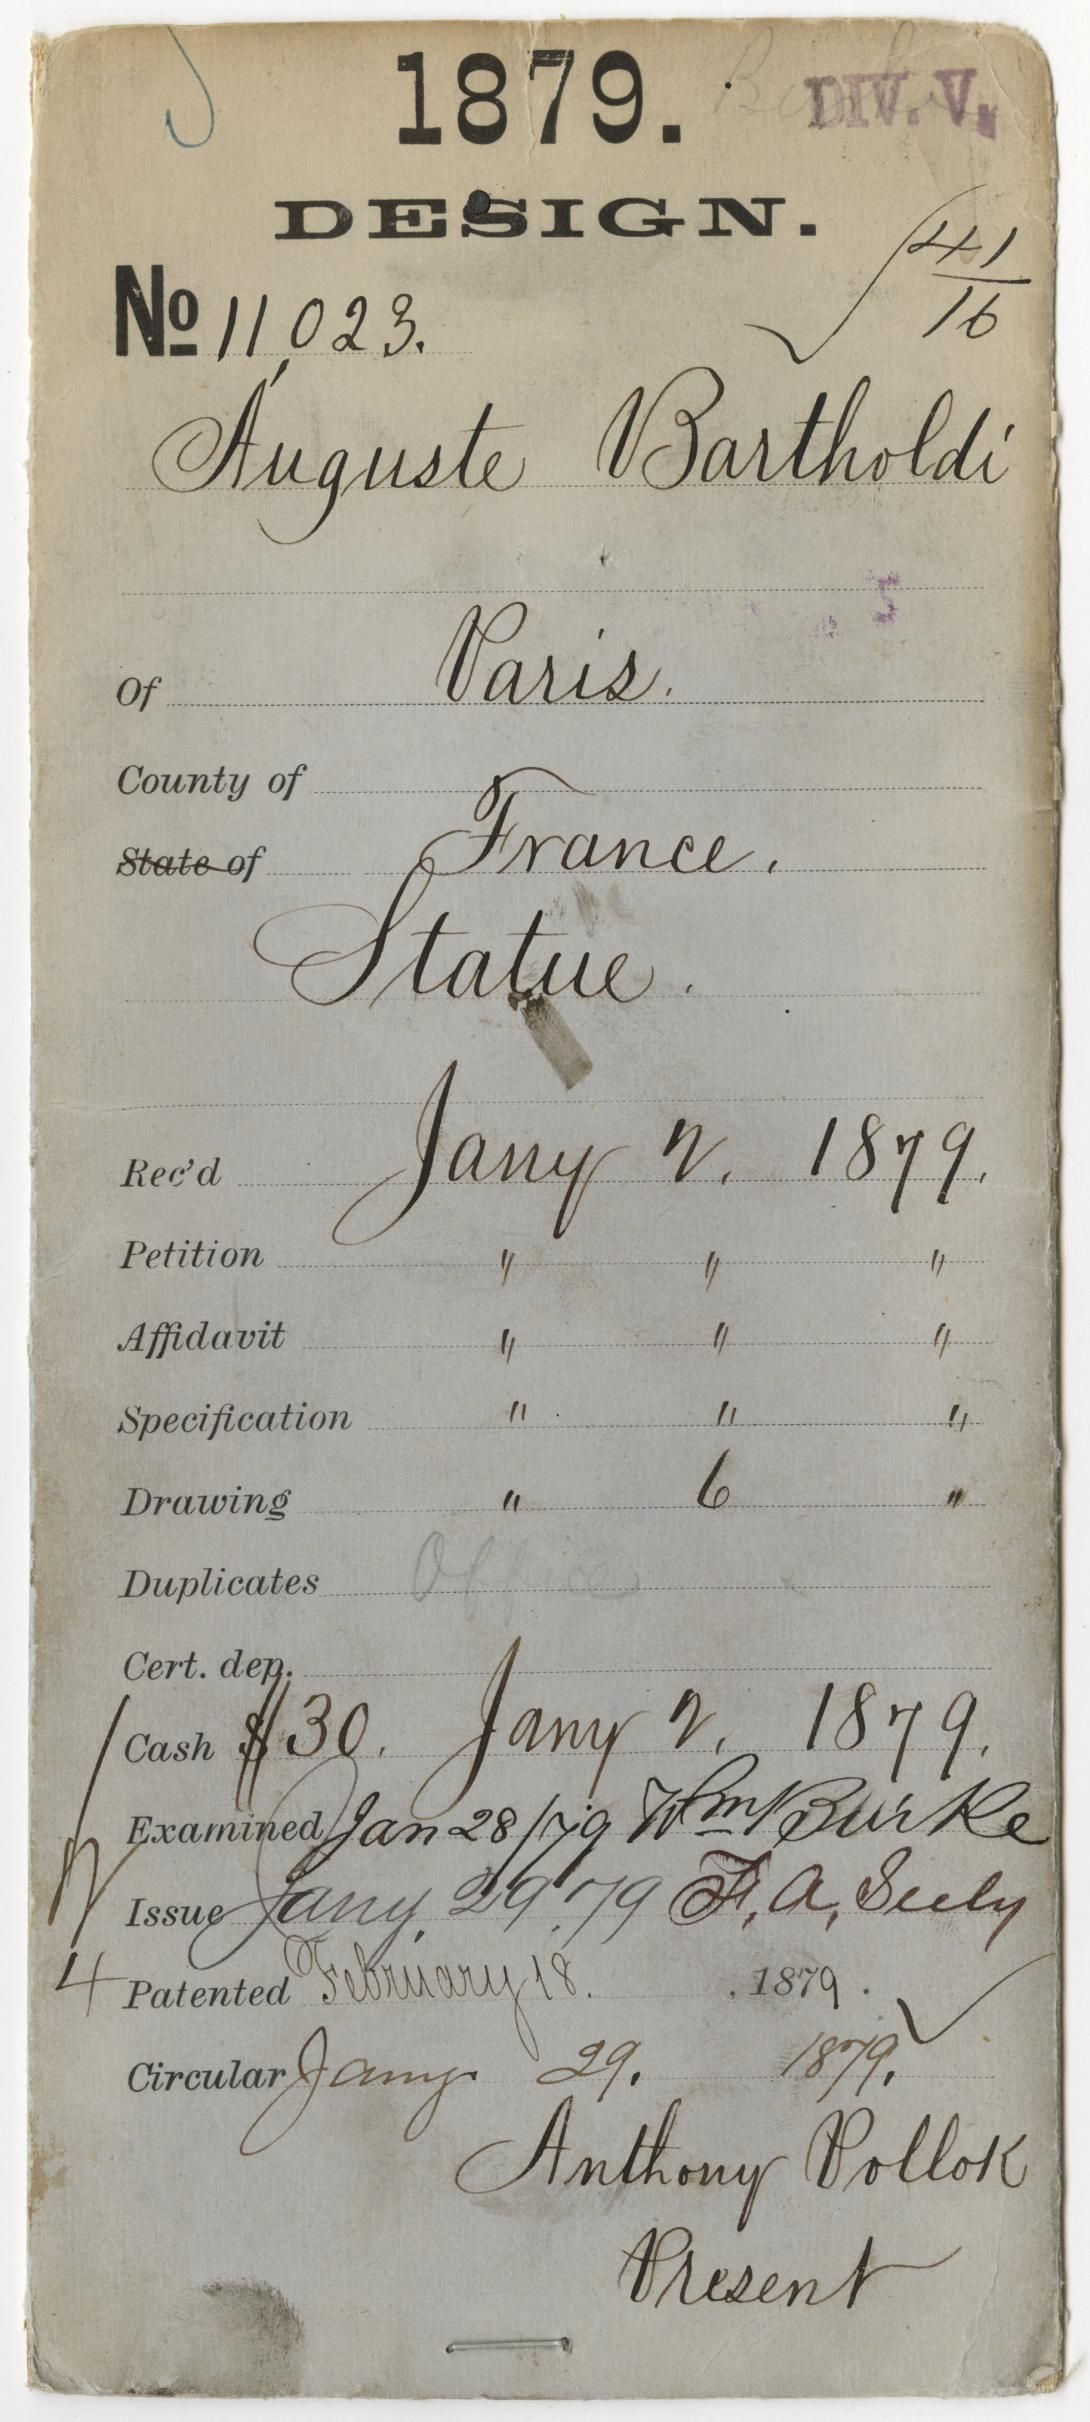 1879.
DIV. V.
DESIGN.
41
16
No 11,023.
Auguste Bartholdi
5
Of Paris.
County of
State of France.
Statue.
Rec'd Jany 2. 1879.
Petition " " "
Affidavit " " "
Specification " " "
Drawing " 6 "
Duplicates Office
Cert. dep.
1 Cash $30. Jany 2. 1879.
Examined Jan 28/79 Wm Burke
2 Issue Jany. 29 '79 F. A. Seely
4 Patented February 18. . 1879.
Circular Jany. 29. 1879.
Anthony Pollok
Present